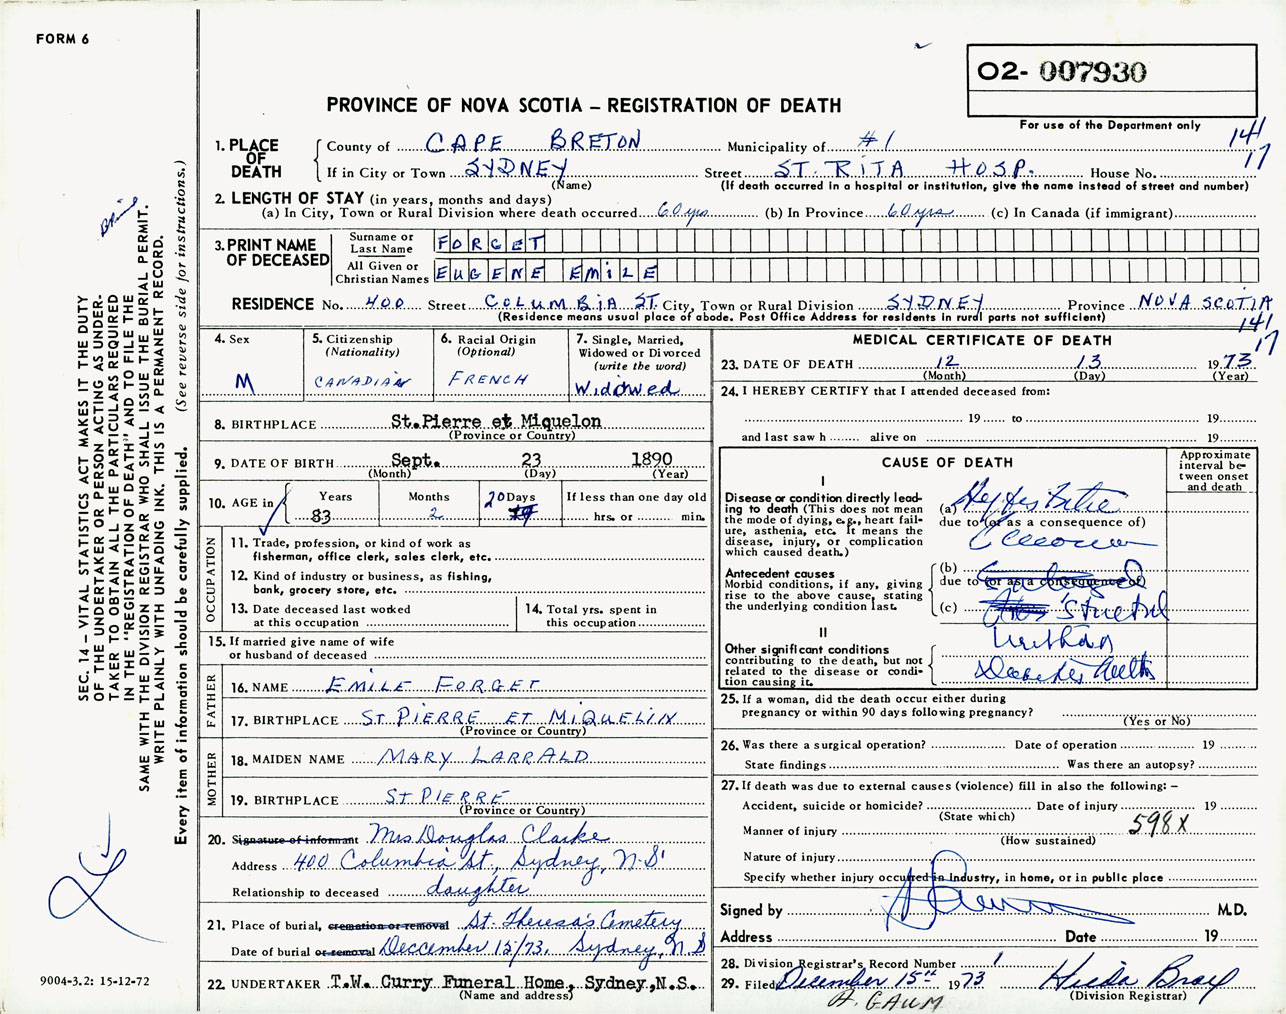 FORM 6
O2- 007930
PROVINCE OF NOVA SCOTIA – REGISTRATION OF DEATH
For use of the Department only
141
17
1. PLACE OF DEATH
County of CAPE BRETON Municipality of #1
If in City or Town SYDNEY Street ST. RITA HOSP. House No.
(Name) (If death occurred in a hospital or institution, give the name instead of street and number)
2. LENGTH OF STAY (in years, months and days)
(a) In City, Town or Rural Division where death occurred 60 yrs (b) In Province 60 yrs (c) In Canada (if immigrant)
3. PRINT NAME OF DECEASED
Surname or Last Name FORGET
All Given or Christian Names EUGENE EMILE
RESIDENCE No. 400 Street COLUMBIA ST. City, Town or Rural Division SYDNEY Province NOVA SCOTIA
(Residence means usual place of abode. Post Office Address for residents in rural parts not sufficient)
141
17
4. Sex
M
5. Citizenship
(Nationality)
CANADIAN
6. Racial Origin
(Optional)
FRENCH
7. Single, Married,
Widowed or Divorced
(write the word)
WIDOWED
8. BIRTHPLACE St.Pierre et Miquelon
(Province or Country)
9. DATE OF BIRTH Sept. 23 1890
(Month) (Day) (Year)
10. AGE in
Years Months 20 Days If less than one day old
83 2 hrs. or min.
OCCUPATION
11. Trade, profession, or kind of work as
fisherman, office clerk, sales clerk, etc.
12. Kind of industry or business, as fishing,
bank, grocery store, etc.
13. Date deceased last worked
at this occupation
14. Total yrs. spent in
this occupation
15. If married give name of wife
or husband of deceased
FATHER
16. NAME EMILE FORGET
17. BIRTHPLACE ST PIERRE ET MIQUELIN
(Province or Country)
MOTHER
18. MAIDEN NAME MARY LARRALD
19. BIRTHPLACE ST PIERRE
(Province or Country)
20. Signature of informant Mrs Douglas Clarke
Address 400 Columbia St., Sydney, N.S.
Relationship to deceased daughter
21. Place of burial, cremation or removal St. Theresa's Cemetery
Date of burial or removal Deccember 15/73, Sydney, N.S
22. UNDERTAKER T.W. Curry Funeral Home, Sydney,N.S.
(Name and address)
MEDICAL CERTIFICATE OF DEATH
23. DATE OF DEATH 12 13 1973
(Month) (Day) (Year)
24. I HEREBY CERTIFY that I attended deceased from:
19 to 19
and last saw h alive on 19
CAUSE OF DEATH
Approximate
interval be-
tween onset
and death
I
Disease or condition directly lead-
ing to death (This does not
mean the mode of dying, e.g., heart fail-
ure, asthenia, etc. It means the
disease, injury, or complication
which caused death.)
(a)
due to (or as a consequence of)
Antecedent causes
Morbid conditions, if any, giving
rise to the above cause, stating
the underlying condition last.
(b)
due to (or as a consequence of)
(c)
II
Other significant conditions
contributing to the death, but not
related to the disease or condi-
tion causing it.
25. If a woman, did the death occur either during
pregnancy or within 90 days following pregnancy?
(Yes or No)
26. Was there a surgical operation? Date of operation 19
State findings Was there an autopsy?
27. If death was due to external causes (violence) fill in also the following: –
Accident, suicide or homicide? Date of injury 19
(State which)
Manner of injury 598X
(How sustained)
Nature of injury
Specify whether injury occurred in Industry, in home, or in public place
Signed by M.D.
Address Date 19
28. Division Registrar's Record Number 1
29. Filed December 15th 1973
(Division Registrar)
A. GAUM
SEC. 14 – VITAL STATISTICS ACT MAKES IT THE DUTY
OF THE UNDERTAKER OR PERSON ACTING AS UNDER-
TAKER TO OBTAIN ALL THE PARTICULARS REQUIRED
IN THE "REGISTRATION OF DEATH" AND TO FILE THE
SAME WITH THE DIVISION REGISTRAR WHO SHALL ISSUE THE BURIAL PERMIT.
WRITE PLAINLY WITH UNFADING INK. THIS IS A PERMANENT RECORD.
Every item of information should be carefully supplied. (See reverse side for instructions.)
9004-3.2: 15-12-72